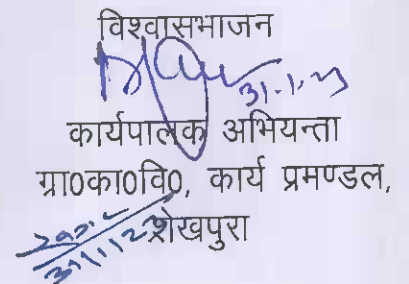 विश्वासभाजन
31.1.23
कार्यपालक अभियन्ता
ग्रा0का0वि0, कार्य प्रमण्डल,
शेखपुरा
31/1/23